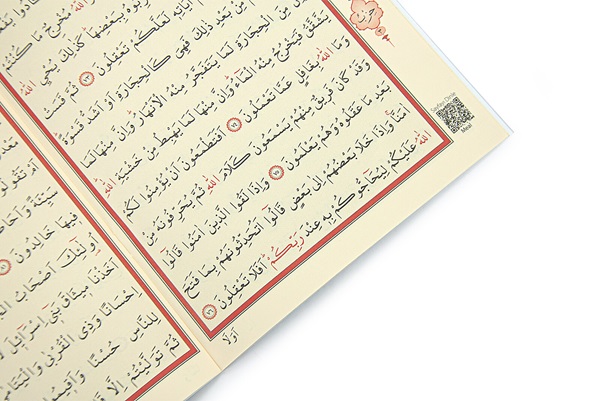 اللّٰهُ مُخْرِجٌ مَا كُنْتُمْ
بِبَعْضِهَا كَذٰلِكَ يُحْيِ اللّٰهُ
لَعَلَّكُمْ تَعْقِلُونَ ٧٣ ثُمَّ قَسَتْ
مِنْ بَعْدِ ذٰلِكَ فَهِيَ كَالْحِجَارَةِ اَوْ اَشَدُّ قَسْوَةً
مِنَ الْحِجَارَةِ لَمَا يَتَفَجَّرُ مِنْهُ الْاَنْهَارُ وَاِنَّ مِنْهَا لَمَا
يَشَّقَّقُ فَيَخْرُجُ مِنْهُ الْمَاءُ وَاِنَّ مِنْهَا لَمَا يَهْبِطُ مِنْ خَشْيَةِ اللّٰهِ
وَمَا اللّٰهُ بِغَافِلٍ عَمَّا تَعْمَلُونَ ٧٤ اَفَتَطْمَعُونَ اَنْ يُؤْمِنُوا لَكُمْ
وَقَدْ كَانَ فَرِيقٌ مِنْهُمْ يَسْمَعُونَ كَلَامَ اللّٰهِ ثُمَّ يُحَرِّفُونَهُ مِنْ
بَعْدِ مَا عَقَلُوهُ وَهُمْ يَعْلَمُونَ ٧٥ وَاِذَا لَقُوا الَّذِينَ اٰمَنُوا قَالُوا
اٰمَنَّا وَاِذَا خَلَا بَعْضُهُمْ اِلٰى بَعْضٍ قَالُوا اَتُحَدِّثُونَهُمْ بِمَا فَتَحَ
اللّٰهُ عَلَيْكُمْ لِيُحَاجُّوكُمْ بِهِ عِنْدَ رَبِّكُمْ اَفَلَا تَعْقِلُونَ ٧٦
اَوَلَا
حزب
Meal
اَمْ تَقُولُونَ
سَيِّئَةً
فِيهَا خَالِدُونَ
اُولٰئِكَ اَصْحَابُ
اَخَذْنَا مِيثَاقَ بَنِي اِسْرَائِيلَ
اِحْسَانًا وَذِي الْقُرْبٰى وَالْيَتَامٰى
لِلنَّاسِ حُسْنًا وَاَقِيمُوا
ثُمَّ تَوَلَّيْتُمْ اِلَّا